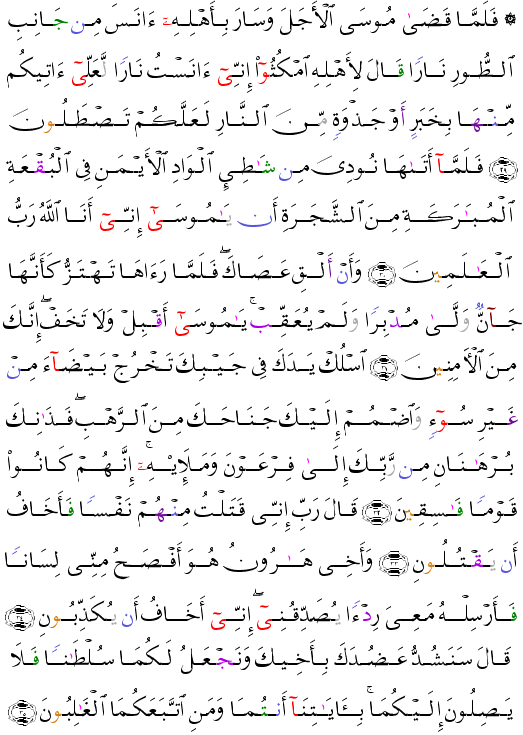 ۞ فَلَمَّا قَضَىٰ مُوسَى ٱلْأَجَلَ وَسَارَ بِأَهْلِهِۦٓ ءَانَسَ مِن جَانِبِ
ٱلطُّورِ نَارًا قَالَ لِأَهْلِهِ ٱمْكُثُوٓا۟ إِنِّىٓ ءَانَسْتُ نَارًا لَّعَلِّىٓ ءَاتِيكُم
مِّنْهَا بِخَبَرٍ أَوْ جَذْوَةٍ مِّنَ ٱلنَّارِ لَعَلَّكُمْ تَصْطَلُونَ
۝٢٩ فَلَمَّآ أَتَىٰهَا نُودِىَ مِن شَٰطِئِ ٱلْوَادِ ٱلْأَيْمَنِ فِى ٱلْبُقْعَةِ
ٱلْمُبَٰرَكَةِ مِنَ ٱلشَّجَرَةِ أَن يَٰمُوسَىٰٓ إِنِّىٓ أَنَا ٱللَّهُ رَبُّ
ٱلْعَٰلَمِينَ ۝٣٠ وَأَنْ أَلْقِ عَصَاكَ ۖ فَلَمَّا رَءَاهَا تَهْتَزُّ كَأَنَّهَا
جَآنٌّ وَلَّىٰ مُدْبِرًا وَلَمْ يُعَقِّبْ ۚ يَٰمُوسَىٰٓ أَقْبِلْ وَلَا تَخَفْ ۖ إِنَّكَ
مِنَ ٱلْءَامِنِينَ ۝٣١ ٱسْلُكْ يَدَكَ فِى جَيْبِكَ تَخْرُجْ بَيْضَآءَ مِنْ
غَيْرِ سُوٓءٍ وَٱضْمُمْ إِلَيْكَ جَنَاحَكَ مِنَ ٱلرَّهْبِ ۖ فَذَٰنِكَ
بُرْهَٰنَانِ مِن رَّبِّكَ إِلَىٰ فِرْعَوْنَ وَمَلَإِي۟هِۦٓ ۚ إِنَّهُمْ كَانُوا۟
قَوْمًا فَٰسِقِينَ ۝٣٢ قَالَ رَبِّ إِنِّى قَتَلْتُ مِنْهُمْ نَفْسًا فَأَخَافُ
أَن يَقْتُلُونِ ۝٣٣ وَأَخِى هَٰرُونُ هُوَ أَفْصَحُ مِنِّى لِسَانًا
فَأَرْسِلْهُ مَعِىَ رِدْءًا يُصَدِّقُنِىٓ ۖ إِنِّىٓ أَخَافُ أَن يُكَذِّبُونِ ۝٣٤
قَالَ سَنَشُدُّ عَضُدَكَ بِأَخِيكَ وَنَجْعَلُ لَكُمَا سُلْطَٰنًا فَلَا
يَصِلُونَ إِلَيْكُمَا ۚ بِـَٔايَٰتِنَآ أَنتُمَا وَمَنِ ٱتَّبَعَكُمَا ٱلْغَٰلِبُونَ ۝٣٥